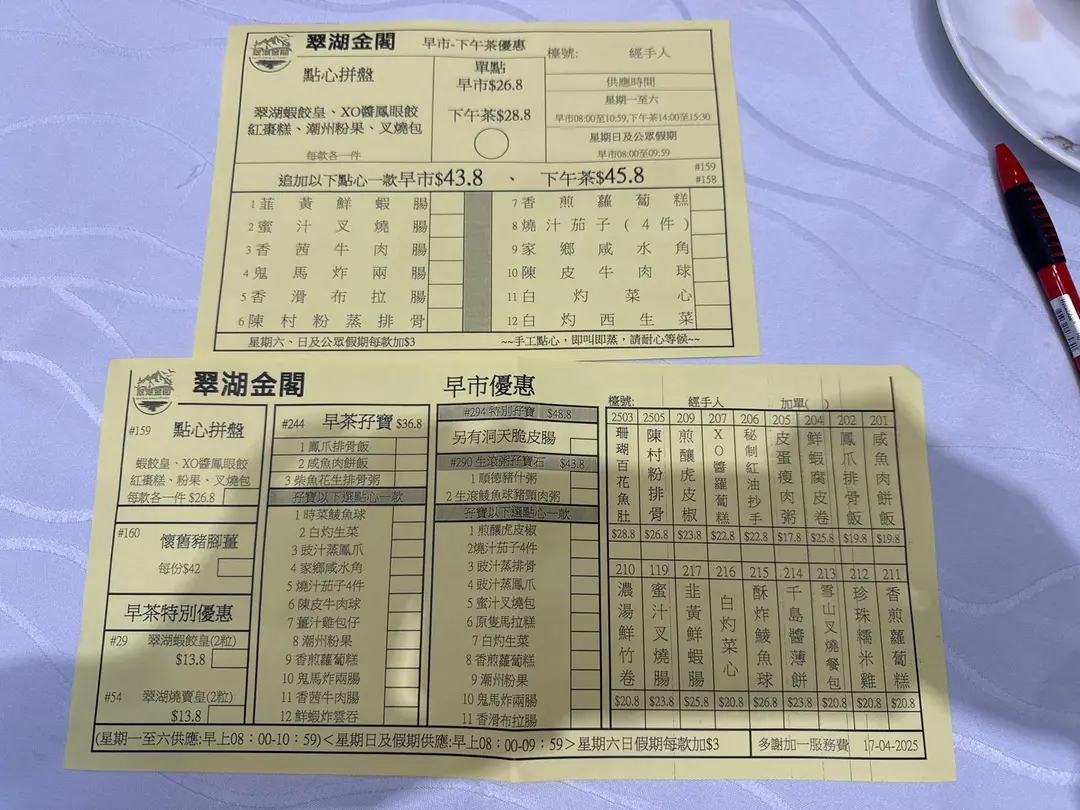 翠湖金閣
早市-下午茶優惠
檯號:
經手人
點心拼盤
翠湖蝦餃皇、XO醬鳳眼餃
紅棗糕、潮州粉果、叉燒包
每款各一件
單點
早市$26.8
下午茶$28.8
供應時間
星期一至六
早市08:00至10:59,下午茶14:00至15:30
星期日及公眾假期
早市08:00至09:59
追加以下點心一款早市$43.8 、 下午茶$45.8
#159
#158
1 韮黃鮮蝦腸
2 蜜汁叉燒腸
3 香茜牛肉腸
4 鬼馬炸兩腸
5 香滑布拉腸
6 陳村粉蒸排骨
7 香煎蘿蔔糕
8 燒汁茄子(4件)
9 家鄉咸水角
10 陳皮牛肉球
11 白灼菜心
12 白灼西生菜
星期六、日及公眾假期每款加$3
~~手工點心，即叫即蒸，請耐心等候~~
翠湖金閣
早市優惠
#159 點心拼盤
蝦餃皇、XO醬鳳眼餃
紅棗糕、粉果、叉燒包
每款各一件 $26.8
#160 懷舊豬腳薑
每份$42
早茶特別優惠
#29 翠湖蝦餃皇(2粒)
$13.8
#54 翠湖燒賣皇(2粒)
$13.8
#244 早茶孖寶 $36.8
1 鳳爪排骨飯
2 咸魚肉餅飯
3 柴魚花生排骨粥
孖寶以下選點心一款
1 時菜鯪魚球
2 白灼生菜
3 豉汁蒸鳳爪
4 家鄉咸水角
5 燒汁茄子4件
6 陳皮牛肉球
7 薑汁雞包仔
8 潮州粉果
9 香煎蘿蔔糕
10 鬼馬炸兩腸
11 香茜牛肉腸
12 鮮蝦炸雲吞
#294 特別孖寶 $48.8
另有洞天脆皮腸
#290 生滾粥孖寶石 $43.8
1 順德豬什粥
2 生滾鯪魚球豬頸肉粥
孖寶以下選點心一款
1 煎釀虎皮椒
2燒汁茄子4件
3 豉汁蒸排骨
4 豉汁蒸鳳爪
5 蜜汁叉燒包
6 原隻馬拉糕
7 白灼生菜
8 香煎蘿蔔糕
9 潮州粉果
10 鬼馬炸兩腸
11 香滑布拉腸
檯號:
經手人
加單( )
2503 珊瑚百花魚肚 $28.8
2505 陳村粉排骨 $26.8
209 煎釀虎皮椒 $23.8
207 XO醬羅蔔糕 $22.8
206 秘制紅油抄手 $22.8
205 皮蛋瘦肉粥 $17.8
204 鮮蝦腐皮卷 $25.8
202 鳳爪排骨飯 $19.8
201 咸魚肉餅飯 $19.8
210 濃湯鮮竹卷 $20.8
119 蜜汁叉燒腸 $23.8
217 韭黃鮮蝦腸 $25.8
216 白灼菜心 $20.8
215 酥炸鯪魚球 $26.8
214 千島醬薄餅 $23.8
213 雪山叉燒餐包 $20.8
212 珍珠糯米雞 $20.8
211 香煎蘿蔔糕 $20.8
(星期一至六供應:早上08：00-10：59)＜星期日及假期供應:早上08：00-09：59＞星期六日假期每款加$3
多謝加一服務費
17-04-2025